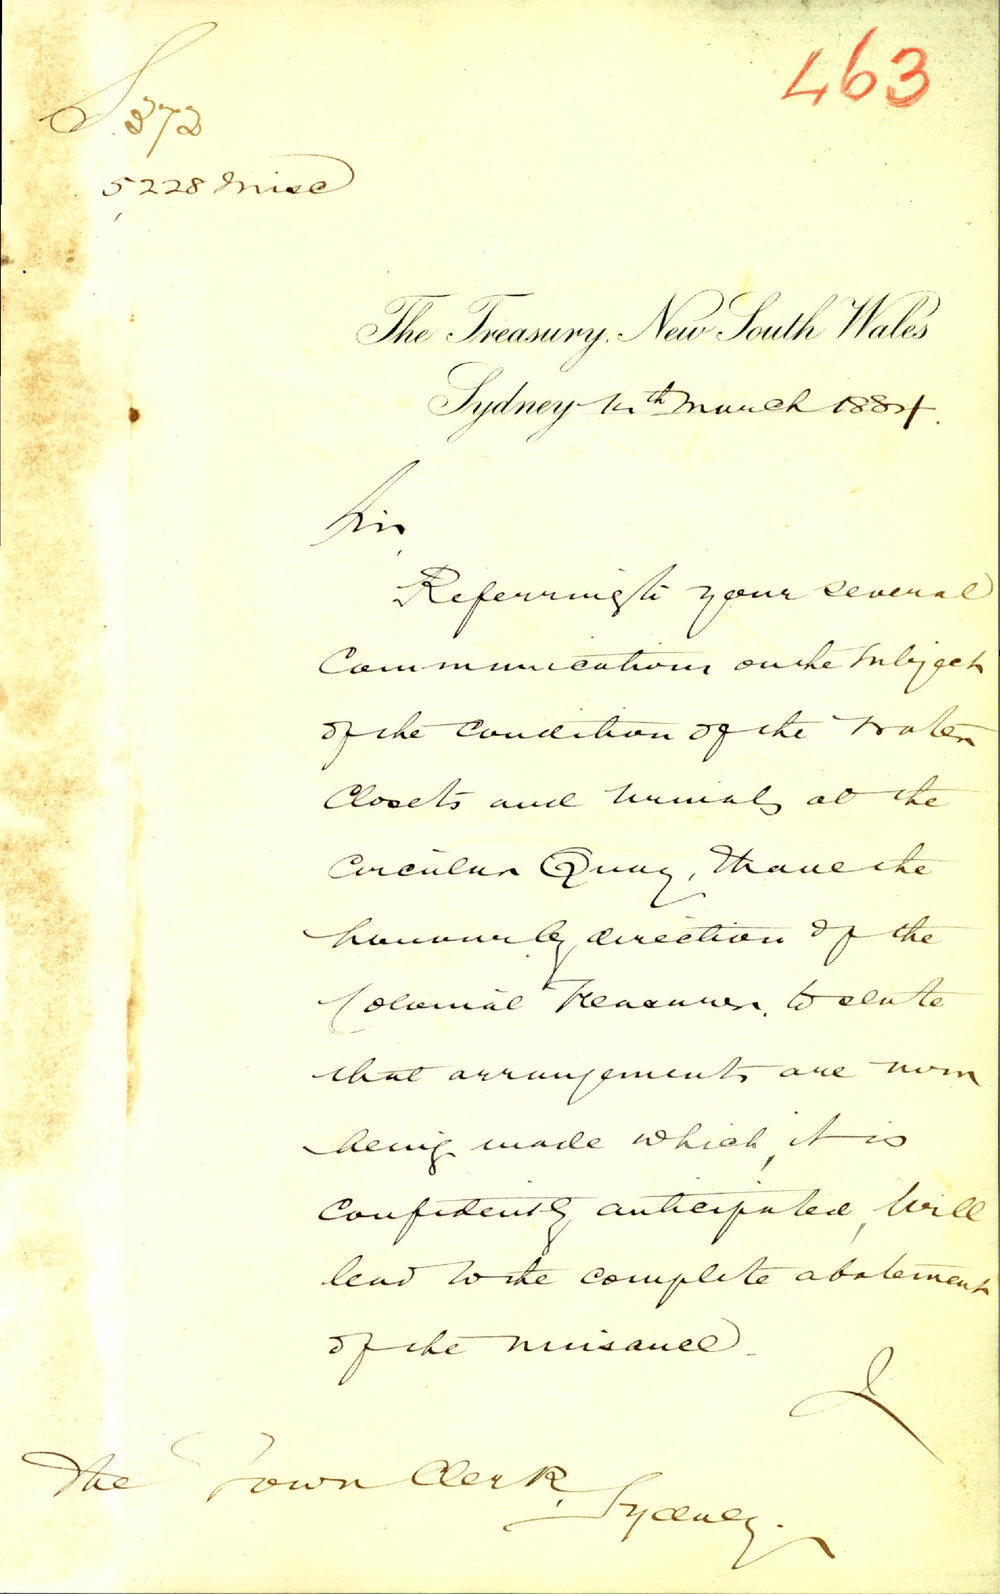 463
S. 372
5228 Misc
The Treasury, New South Wales
Sydney 14th March 1884.
Sir,
Referring to your several
communications on the subject
of the condition of the Water
Closets and Urinals at the
Circular Quay, I have the
honour by direction of the
Colonial Treasurer, to state
that arrangements are now
being made which, it is
confidently anticipated, will
lead to the complete abatement
of the nuisance.
I
The Town Clerk,
Sydney.